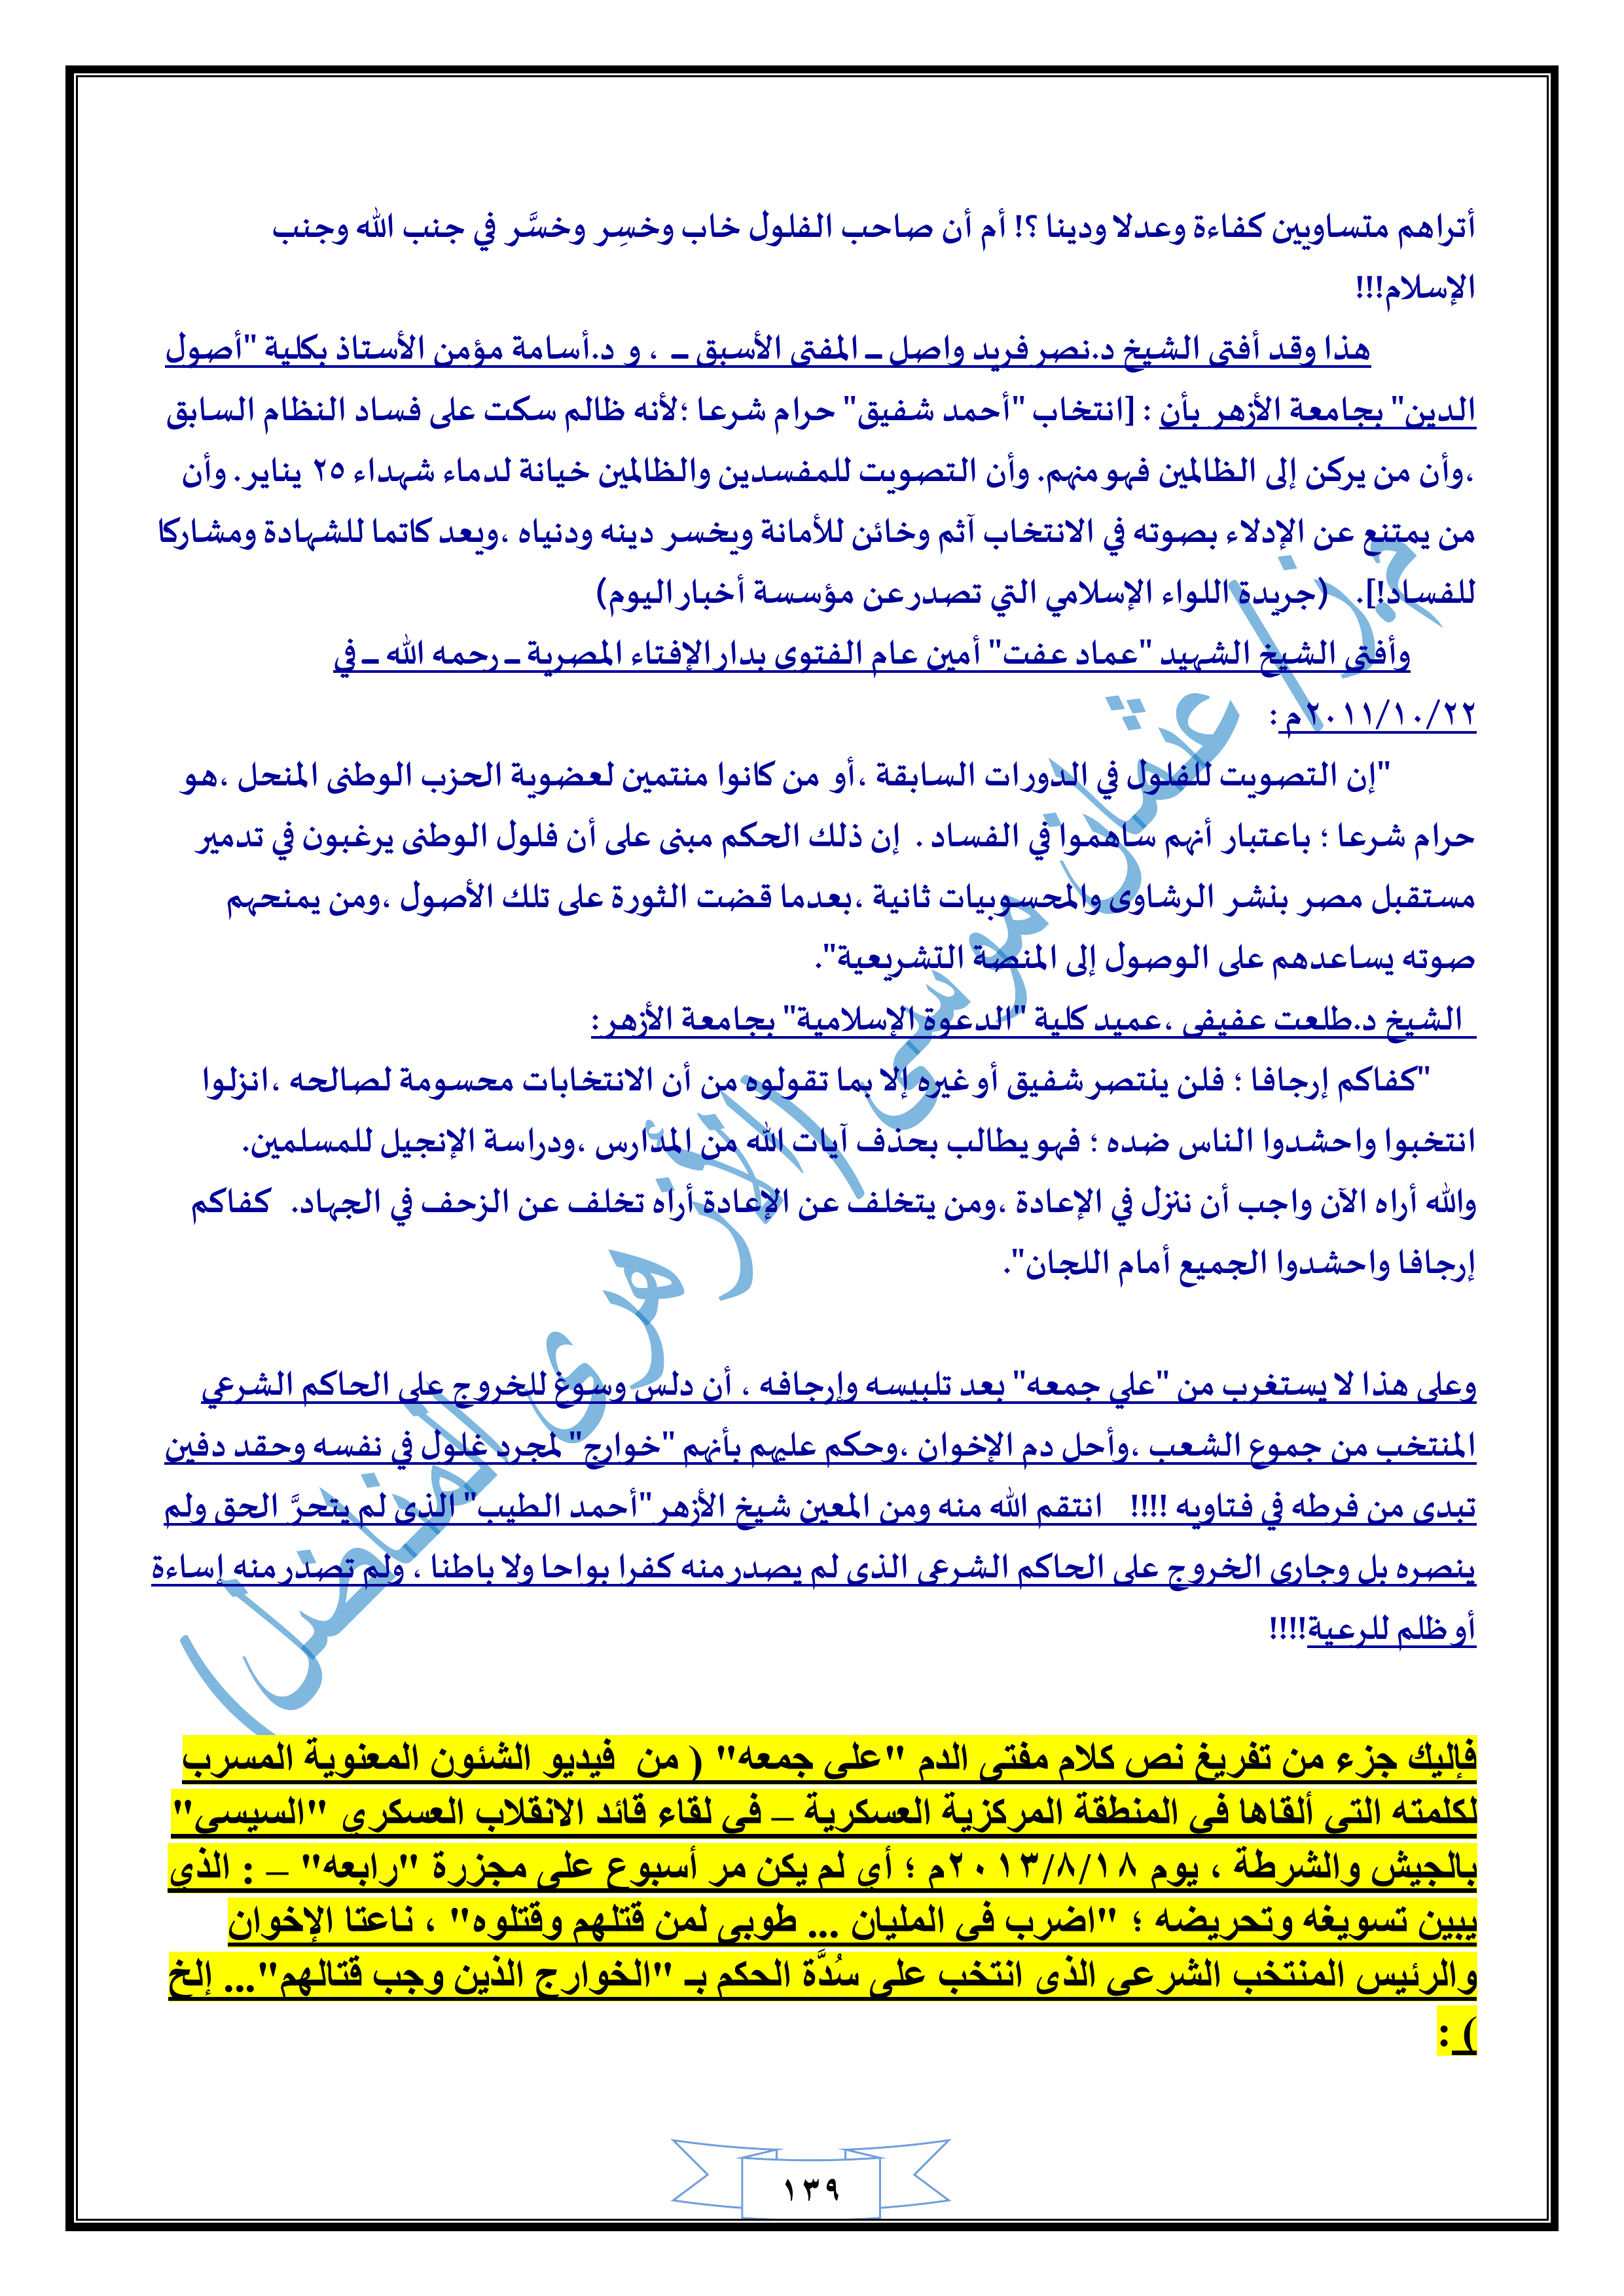 أتراهم متساويين كفاءة وعدلا ودينا ؟! أم أن صاحب الفلول خاب وخسِر وخسَّر في جنب الله وجنب
الإسلام!!!
هذا وقد أفتى الشيخ د.نصر فريد واصل ــ المفتى الأسبق ــ ، و د.أسامة مؤمن الأستاذ بكلية "أصول
الدين" بجامعة الأزهر بأن : [انتخاب "أحمد شفيق" حرام شرعا ؛لأنه ظالم سكت على فساد النظام السابق
،وأن من يركن إلى الظالمين فهو منهم. وأن التصويت للمفسدين والظالمين خيانة لدماء شهداء ٢٥ يناير. وأن
من يمتنع عن الإدلاء بصوته في الانتخاب آثم وخائن للأمانة ويخسر دينه ودنياه ،ويعد كاتما للشهادة ومشاركا
للفساد!]. (جريدة اللواء الإسلامي التي تصدر عن مؤسسة أخبار اليوم)
وأفتى الشيخ الشهيد "عماد عفت" أمين عام الفتوى بدار الإفتاء المصرية ــ رحمه الله ــ في
٢٠١١/١٠/٢٢م :
"إن التصويت للفلول في الدورات السابقة ،أو من كانوا منتمين لعضوية الحزب الوطنى المنحل ،هو
حرام شرعا ؛ باعتبار أنهم ساهموا في الفساد . إن ذلك الحكم مبنى على أن فلول الوطنى يرغبون في تدمير
مستقبل مصر بنشر الرشاوى والمحسوبيات ثانية ،بعدما قضت الثورة على تلك الأصول ،ومن يمنحهم
صوته يساعدهم على الوصول إلى المنصة التشريعية".
الشيخ د.طلعت عفيفى ،عميد كلية "الدعوة الإسلامية" بجامعة الأزهر:
"كفاكم إرجافا ؛ فلن ينتصر شفيق أو غيره إلا بما تقولوه من أن الانتخابات محسومة لصالحه ،انزلوا
انتخبوا واحشدوا الناس ضده ؛ فهو يطالب بحذف آيات الله من المدارس ،ودراسة الإنجيل للمسلمين.
والله أراه الآن واجب أن ننزل في الإعادة ،ومن يتخلف عن الإعادة أراه تخلف عن الزحف في الجهاد. كفاكم
إرجافا واحشدوا الجميع أمام اللجان".
وعلى هذا لا يستغرب من "علي جمعه" بعد تلبيسه وإرجافه ، أن دلس وسوغ للخروج على الحاكم الشرعي
المنتخب من جموع الشعب ،وأحل دم الإخوان ،وحكم عليهم بأنهم "خوارج" لمجرد غلول في نفسه وحقد دفين
تبدى من فرطه في فتاويه !!!! انتقم الله منه ومن المعين شيخ الأزهر "أحمد الطيب" الذى لم يتحرَّ الحق ولم
ينصره بل وجارى الخروج على الحاكم الشرعى الذى لم يصدر منه كفرا بواحا ولا باطنا ، ولم تصدر منه إساءة
أو ظلم للرعية!!!!
فإليك جزء من تفريغ نص كلام مفتى الدم "على جمعه" ( من فيديو الشئون المعنوية المسرب
لكلمته التى ألقاها فى المنطقة المركزية العسكرية – فى لقاء قائد الانقلاب العسكري "السيسي"
بالجيش والشرطة ، يوم ٢٠١٣/٨/١٨م ؛ أي لم يكن مر أسبوع على مجزرة "رابعه" – : الذي
يبين تسويغه وتحريضه ؛ "اضرب فى المليان ... طوبى لمن قتلهم وقتلوه" ، ناعتا الإخوان
والرئيس المنتخب الشرعى الذى انتخب على سُدَّة الحكم بـ "الخوارج الذين وجب قتالهم"... إلخ
) :
عثمان موسى (الأزهرى المناضل)
١٣٩